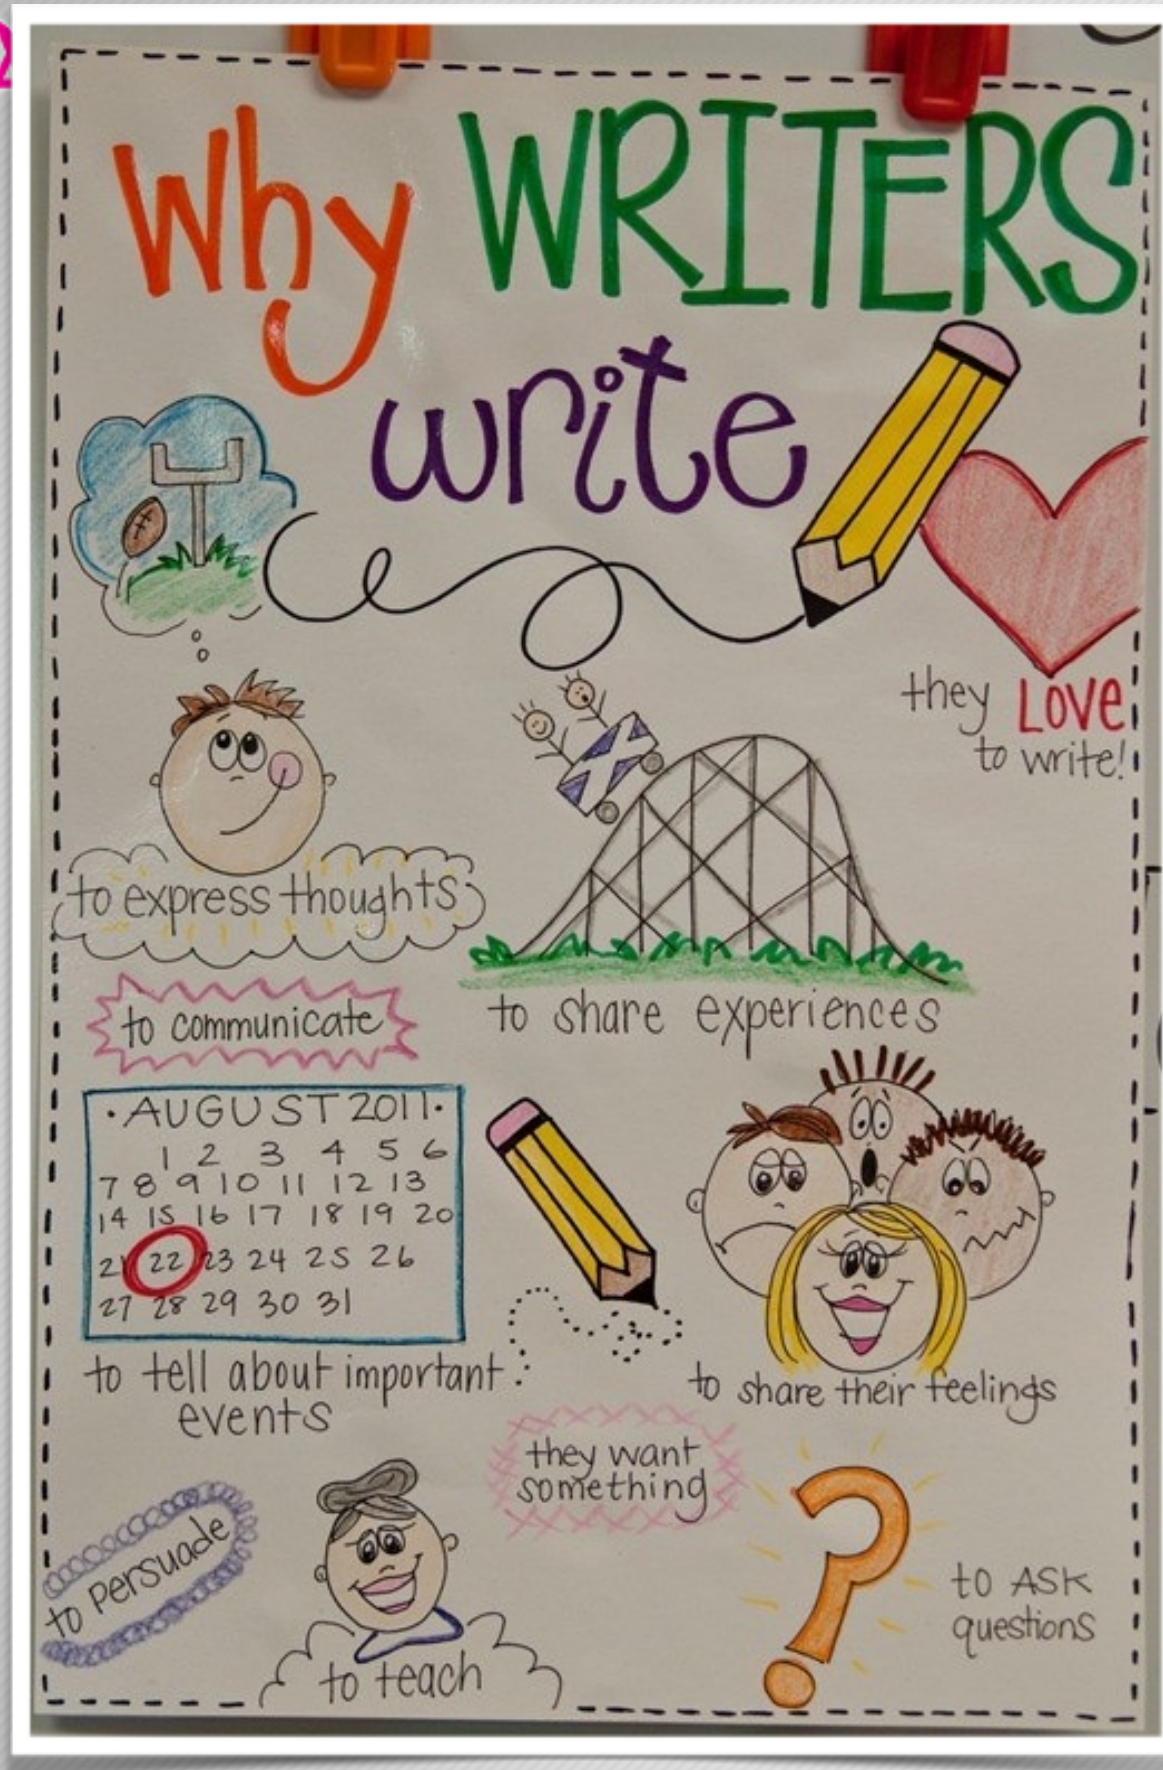 Why WRITERS
write
they LOVE
to write!
to express thoughts
to communicate
to share experiences
·AUGUST 2011·
1 2 3 4 5 6
7 8 9 10 11 12 13
14 15 16 17 18 19 20
21 22 23 24 25 26
27 28 29 30 31
to tell about important
events
to share their feelings
they want
something
to persuade
to teach
?
to ASK
questions